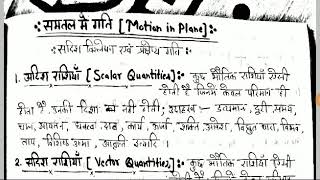 समतल में गति [Motion in Plane]
सदिश विश्लेषण एवं प्रक्षेप्य गति :
1. अदिश राशियाँ [Scalar Quantities]: कुछ भौतिक राशियाँ ऐसी
होती है जिनमें केवल परिमाण ही
होता है उनकी दिशा नही होती; उदाहरण - द्रव्यमान, दूरी, समय,
चाल, आयतन, घनत्व, दाब, कार्य, ऊर्जा, शक्ति, आवेश, विद्युत धारा, विभव,
ताप, विशिष्ट ऊष्मा, आवृत्ति इत्यादि।
2. सदिश राशियाँ [Vector Quantities]: कुछ भौतिक राशियाँ ऐसी